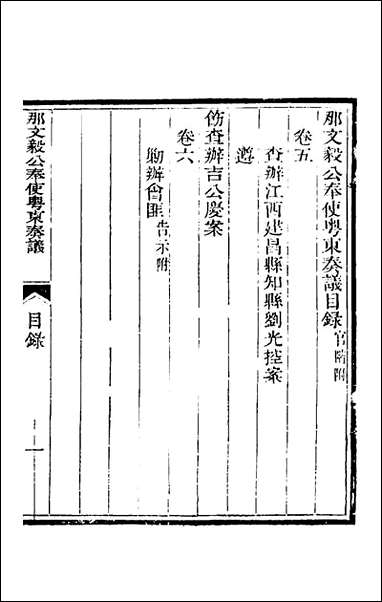 那文毅公奉使粵東奏議目錄 官階附
卷五
查辦江西建昌縣知縣劉光控案
遵
飭查辦吉公慶案
卷六
勦辦會匪 告示附
那文毅公奉使粵東奏議
目錄
一